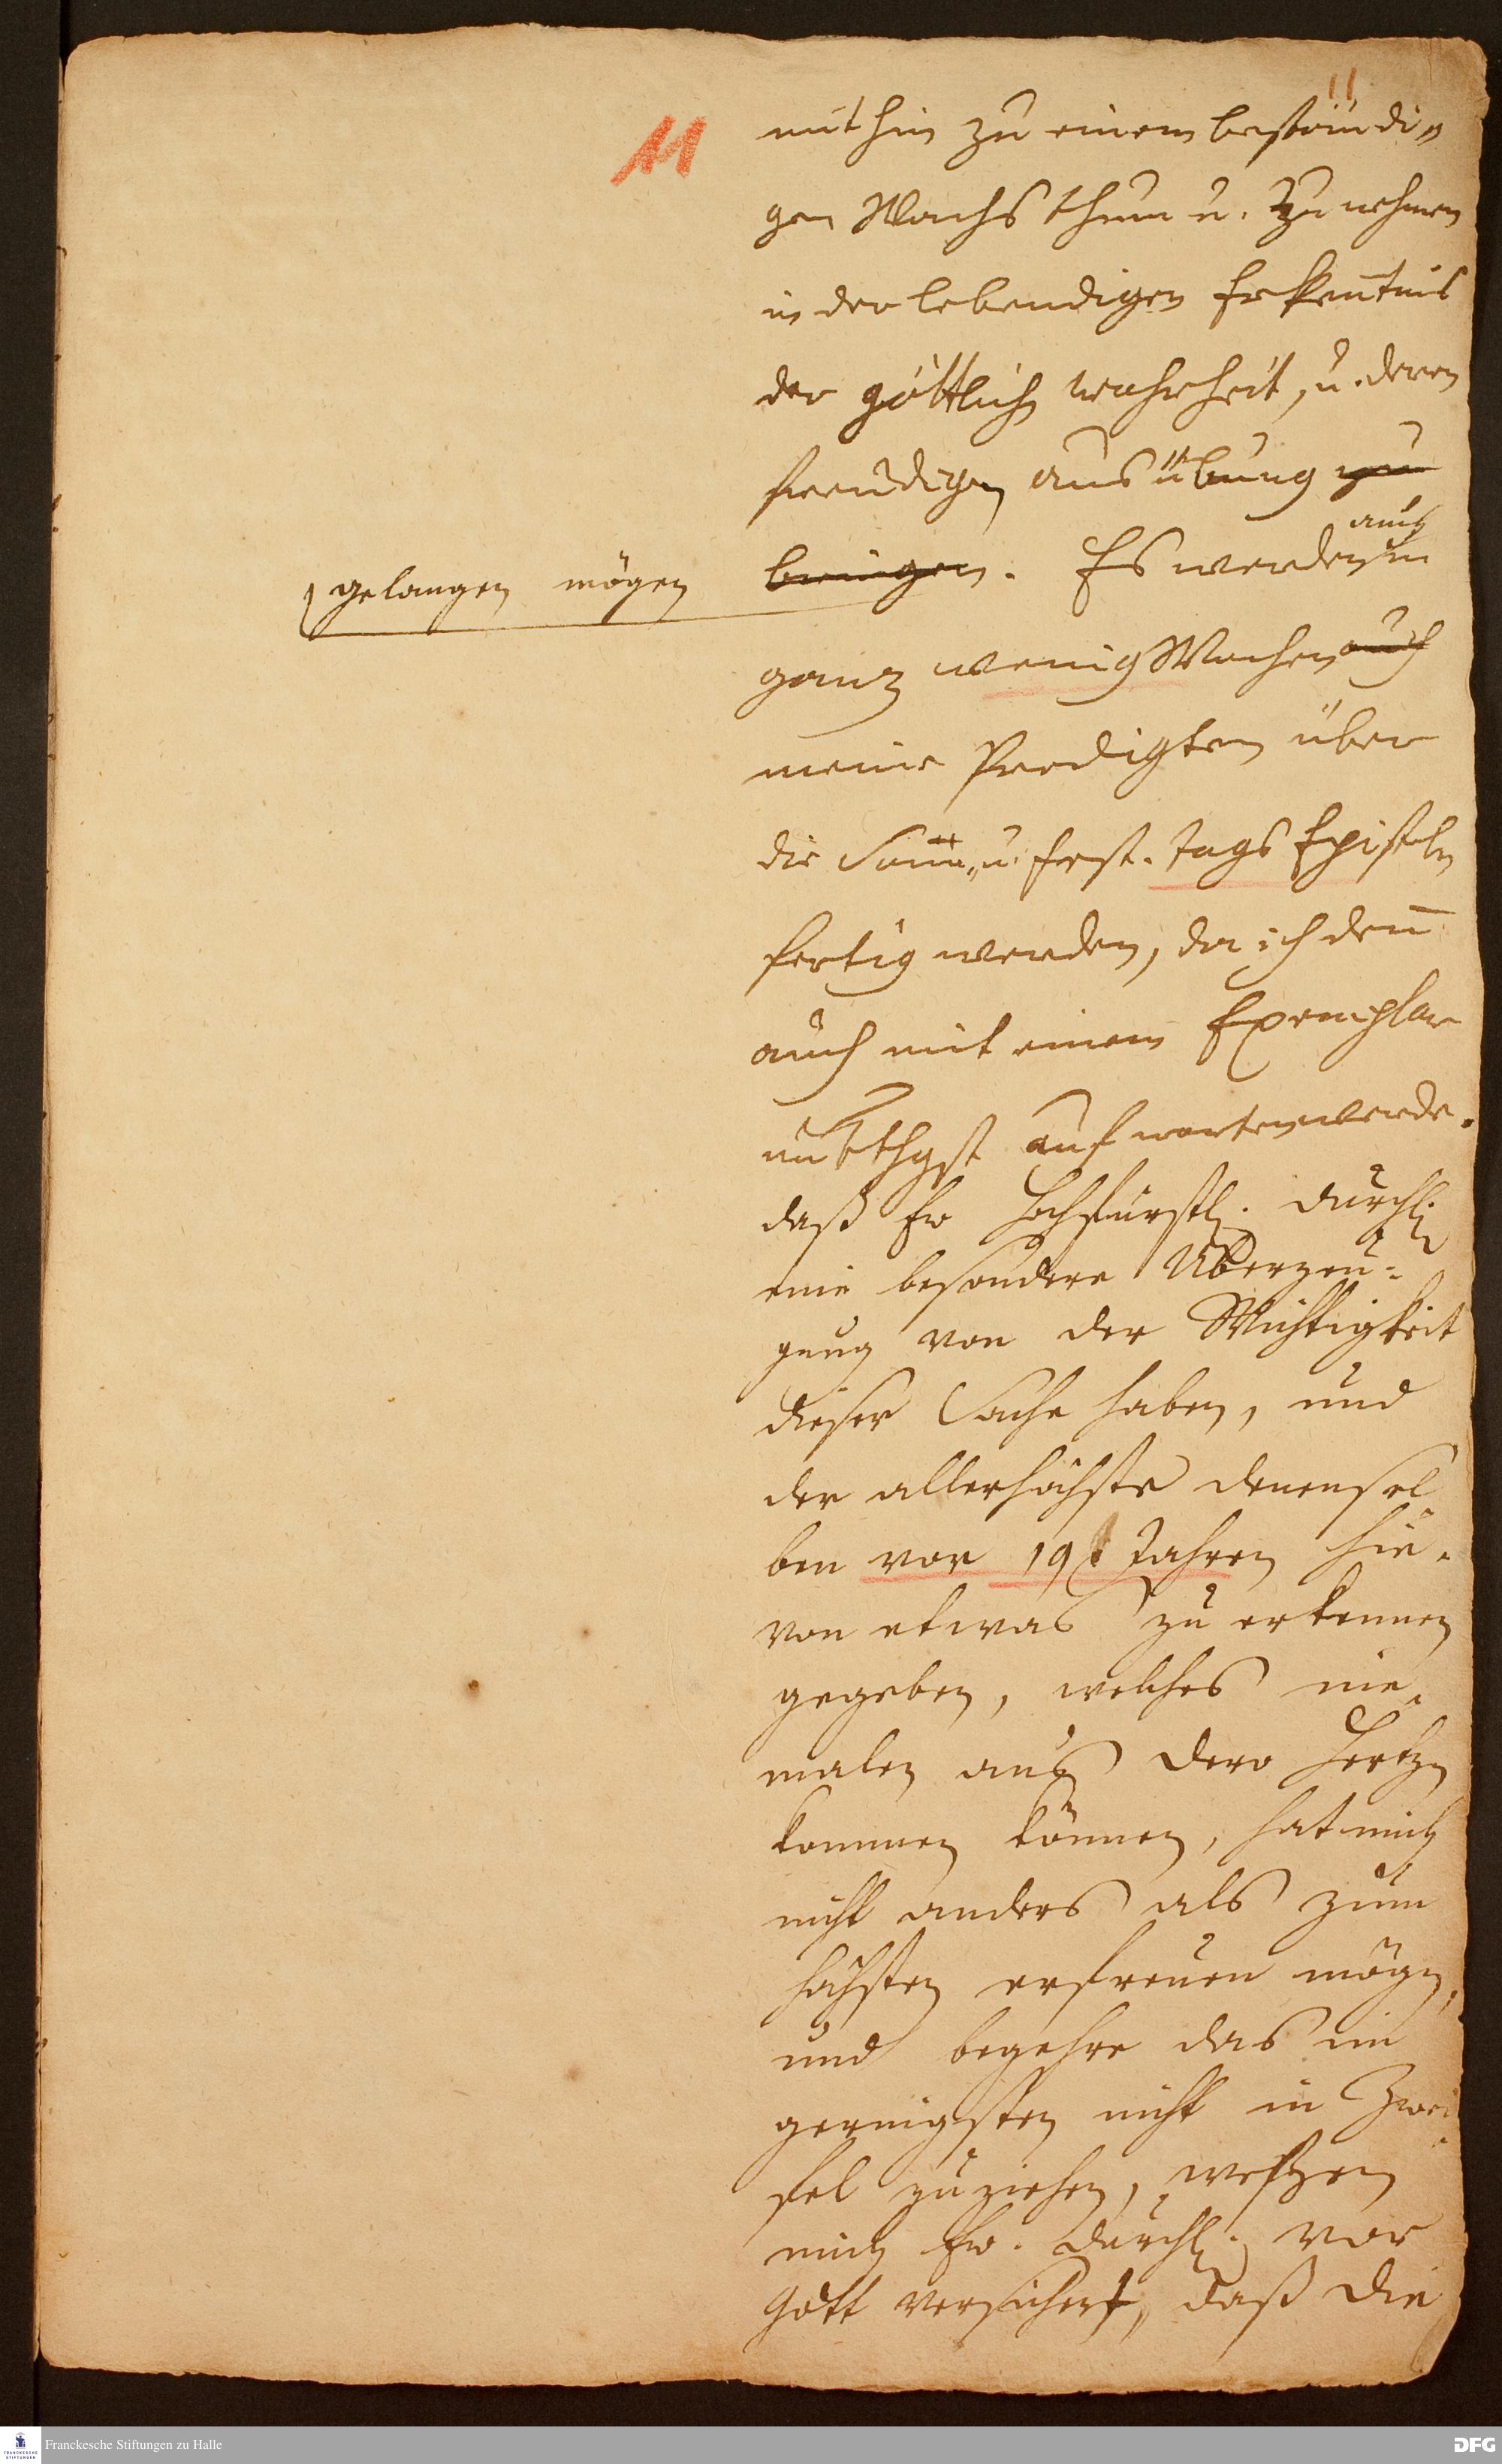 11
11
mithin zu einem beständi„
gen Wachsthum u. Zunehmen
in der lebendigen Erkentnis
der göttlichen wahrheit, u. deren
freudigen ausübung zu
bringen. Es werden auch in
gelangen mögen
ganz wenig Wochen auch
meine Predigten über
die Sonn„ u. Fest-tags Episteln
fertig werden, da ich denn
auch mit einem Exemplar
untthgst aufwarten werde.
daß Ew Hochfürstl. Durchl.
eine besondere Überzeu-
gung von der Wichtigkeit
dieser Sache haben, und
der allerhöchste denensel-
ben vor 19 Jahren hie-
von etwas zu erkennen
gegeben, welches nie-
malen aus Dero Hertzen
kommen können, hat mich
nicht anders als zum
höchsten erfreuen mögen,
und begehre das im
geringsten nicht in Zwei-
fel zu ziehen, weßen
mich Ew. Durchl. vor
Gott versichert, daß die
Franckesche Stiftungen zu Halle
DFG